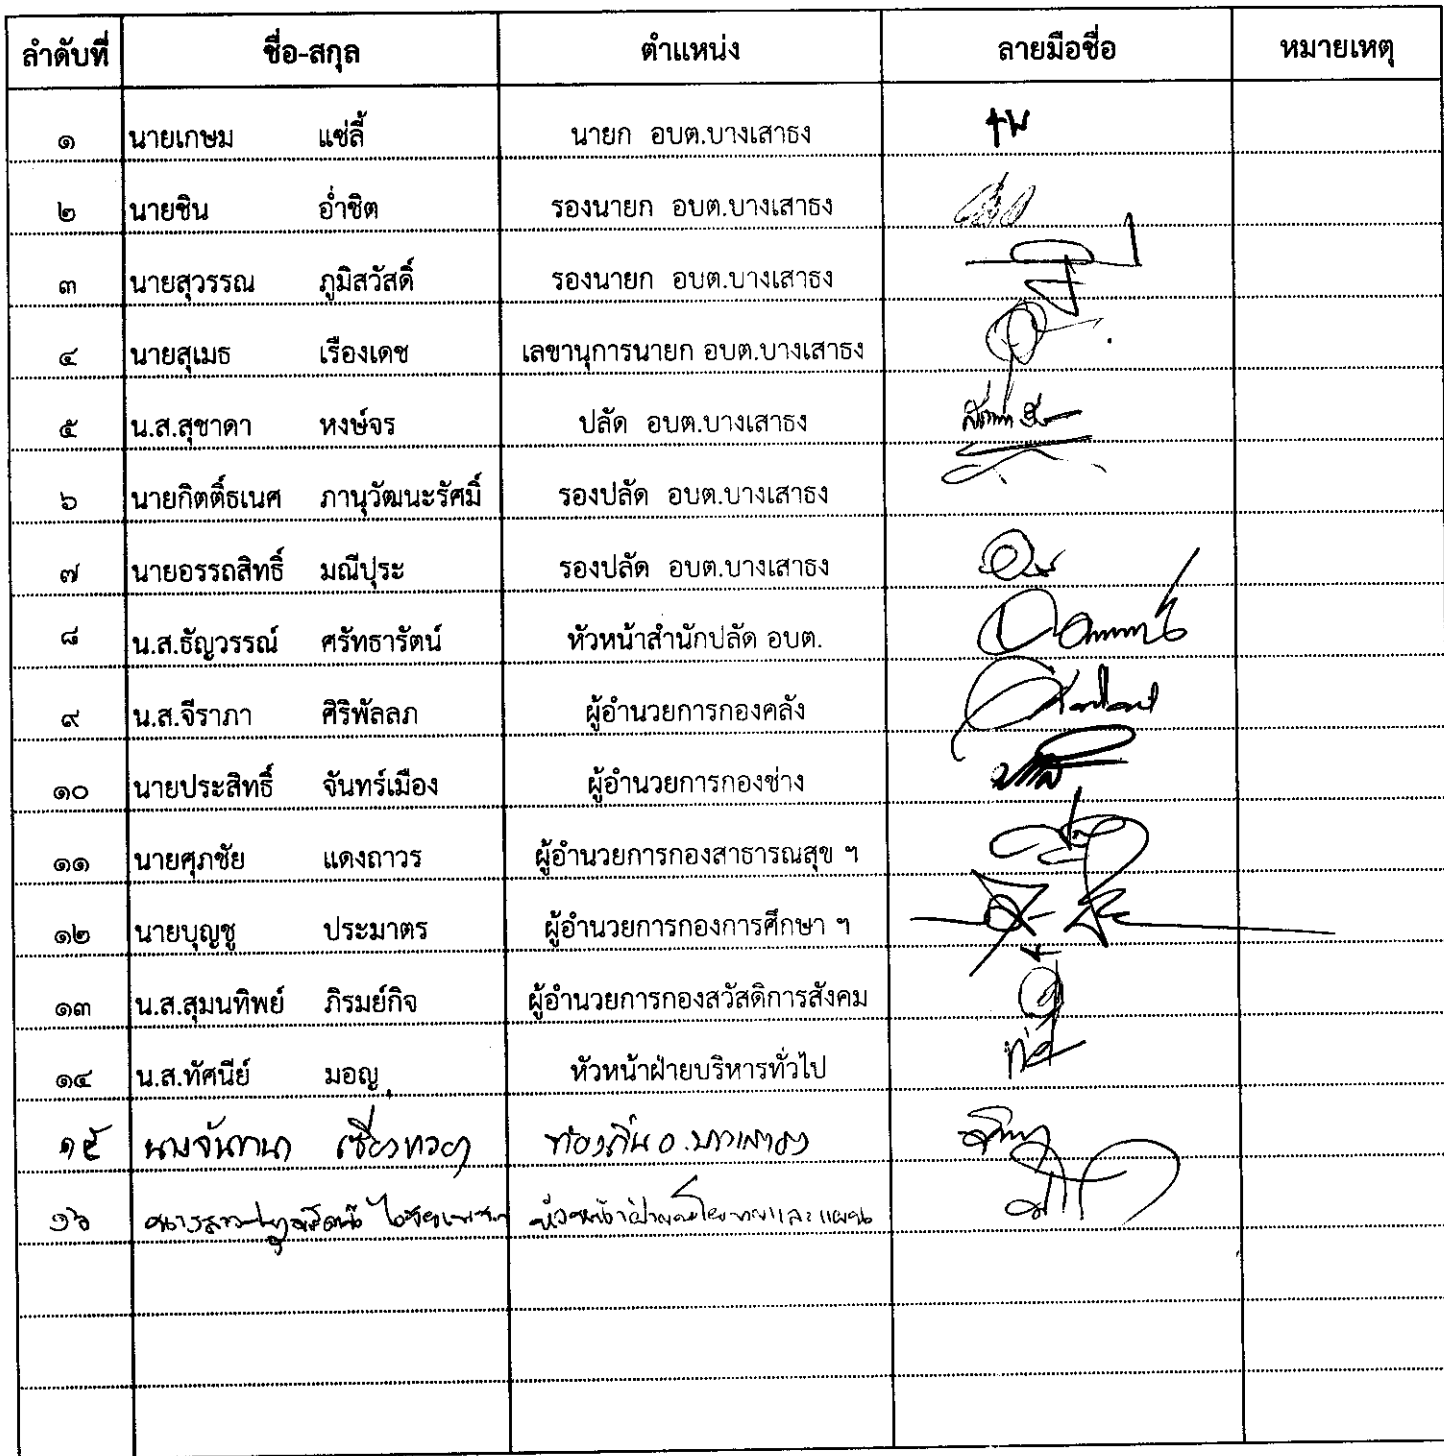 ลำดับที่ ชื่อ-สกุล ตำแหน่ง ลายมือชื่อ หมายเหตุ
๑ นายเกษม แซ่ลี้ นายก อบต.บางเสาธง
๒ นายชิน อ่ำชิต รองนายก อบต.บางเสาธง
๓ นายสุวรรณ ภูมิสวัสดิ์ รองนายก อบต.บางเสาธง
๔ นายสุเมธ เรืองเดช เลขานุการนายก อบต.บางเสาธง
๕ น.ส.สุชาดา หงษ์จร ปลัด อบต.บางเสาธง
๖ นายกิตติ์ธเนศ ภานุวัฒนะรัศมิ์ รองปลัด อบต.บางเสาธง
๗ นายอรรถสิทธิ์ มณีปุระ รองปลัด อบต.บางเสาธง
๘ น.ส.ธัญวรรณ์ ศรัทธารัตน์ หัวหน้าสำนักปลัด อบต.
๙ น.ส.จีราภา ศิริพัลลภ ผู้อำนวยการกองคลัง
๑๐ นายประสิทธิ์ จันทร์เมือง ผู้อำนวยการกองช่าง
๑๑ นายศุภชัย แดงถาวร ผู้อำนวยการกองสาธารณสุข ฯ
๑๒ นายบุญชู ประมาตร ผู้อำนวยการกองการศึกษา ฯ
๑๓ น.ส.สุมนทิพย์ ภิรมย์กิจ ผู้อำนวยการกองสวัสดิการสังคม
๑๔ น.ส.ทัศนีย์ มอญ หัวหน้าฝ่ายบริหารทั่วไป
๑๕ นางจันทนา ท้องถิ่น อ.บางเสาธง
๑๖ นางสาว หัวหน้าฝ่ายนโยบายและแผน